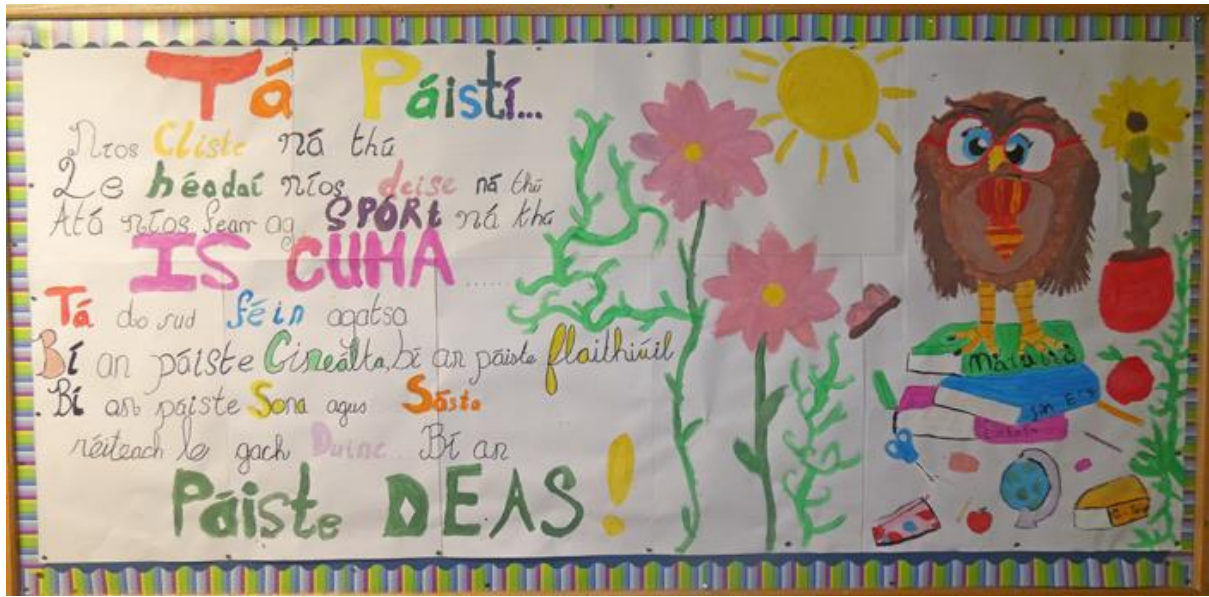 Tá Páistí...
Níos Cliste ná thú
Le héadaí níos deise ná thú
Atá níos fearr ag SPÓRt ná thú
IS CUMA ......
Tá do rud féin agatsa
Bí an páiste Cineálta, bí an páiste flaithiúil
Bí an páiste Sona agus Sásta
réiteach le gach Duine. Bí an
Páiste DEAS!